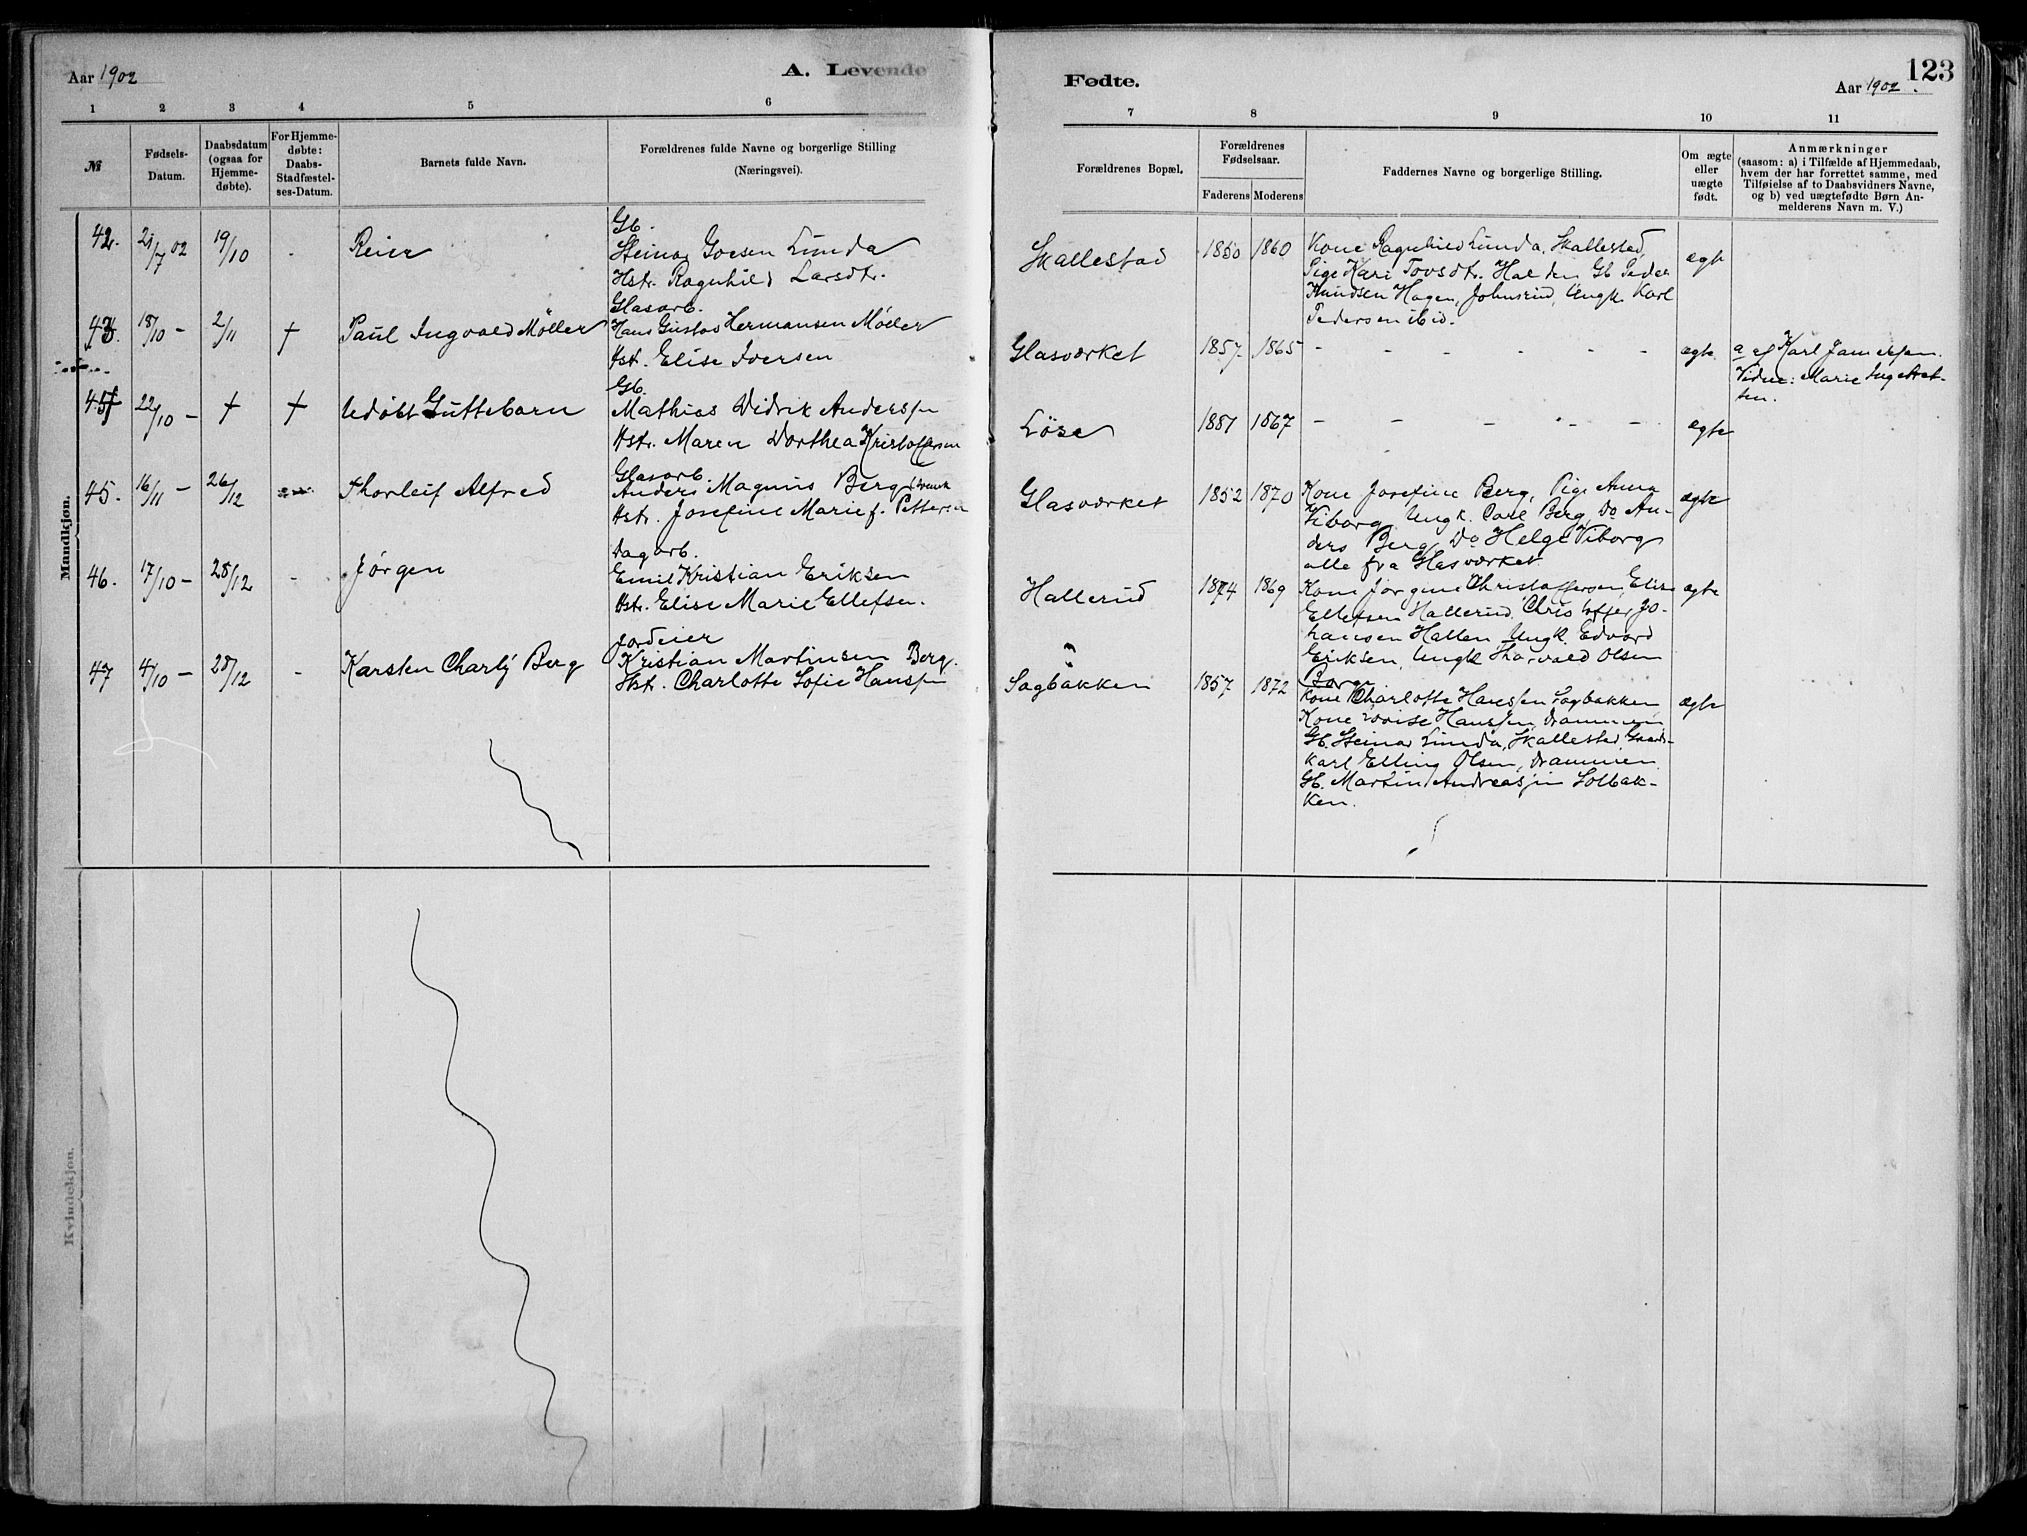 Aar 1902
A. Levende
1 2 3 4 5 6
№
Fødsels-
Datum.
Daabsdatum
(ogsaa for
Hjemme-
døbte).
For Hjemme-
døbte:
Daabs-
Stadfæstel-
ses-Datum.
Barnets fulde Navn.
Forældrenes fulde Navne og borgerlige Stilling
(Næringsvei).
Mandkjøn.
42. 21/7 02 19/10 - Reier
Gb.
Steinar Lunda
Hstr. Ragnhild Larsdtr.
43. 18/10 - 2/11 † Paul Ingvald Møller
Glasarb.
Hans Gustav Hermansen Møller
Hst. Elise Iversen
22/10 - † † Udøbt Guttebarn
Gb.
Mathias Didrik Anderssen
Hstr. Maren Dorthea Kristoffersen
45. 16/11 - 26/12 Thorleif Alfred
Glasarb.
Anders Magnus Berg
Hstr. Josefine Marie f. Pettersen
46. 17/10 - 28/12 - Jørgen
Dagarb.
Emil Kristian Eriksen
Hstr. Elise Marie Ellefsen.
47 4/10 - 28/12 - Karsten Charly Berg
Jordeier
Kristian Martinsen Berg.
Hst. Charlotte Sofie Hanssen
Kvindekjøn.
Fødte.
123
Aar 1902.
7 8 9 10 11
Forældrenes Bopæl.
Forældrenes
Fødselsaar.
Faderens Moderens
Faddernes Navne og borgerlige Stilling.
Om ægte
eller
uægte
født.
Anmærkninger
(saasom: a) i Tilfælde af Hjemmedaab,
hvem der har forrettet samme, med
Tilføielse af to Daabsvidners Navne,
og b) ved uægtefødte Børn An-
melderens Navn m. V.)
Skallestad 1860 ægte
Kone Ragnhild Lunda, Skallestad,
Pige Kari Tovsdtr. Gb. Peder
Knudsen Hagen, Johnsrud, Ungk. Karl
Pedersen ibid.
Glasværket 1857 1865 - - - - - - ægte
a af Karl
Vidne: Marie
Løse 1867 - - - - - ægte
Glasværket 1852 1870 ægte
Kone Josefine Berg, Pige Anna
Viborg, Ungk. Carl Berg, Do An-
ders Berg, Do Helge Viborg
alle fra Glasværket
Hallerud 1874 1869 ægte
Kone Jørgine Christoffersen, Elise
Ellefsen Hallerud, Christoffer Jo-
hansen Hallen, Ungk Edvard
Eriksen, Ungk Harvald Olsen
Berg
Sagbakken 1857 1872 ægte
Kone Charlotte Hanssen Sagbakken
Kone Lovise Hanssen, Drammen
Gb. Steinar Lunda, Skallestad, Gaards-
karl Elling Olsen, Drammen
Gb. Martin Andreassen Solbak-
ken.